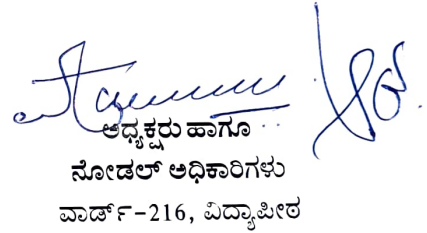 ಅಧ್ಯಕ್ಷರು ಹಾಗೂ
ನೋಡಲ್ ಅಧಿಕಾರಿಗಳು
ವಾರ್ಡ್-216, ವಿದ್ಯಾಪೀಠ